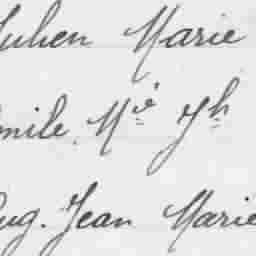 Julien Marie
Emile, Mie Jh
Eug. Jean Marie